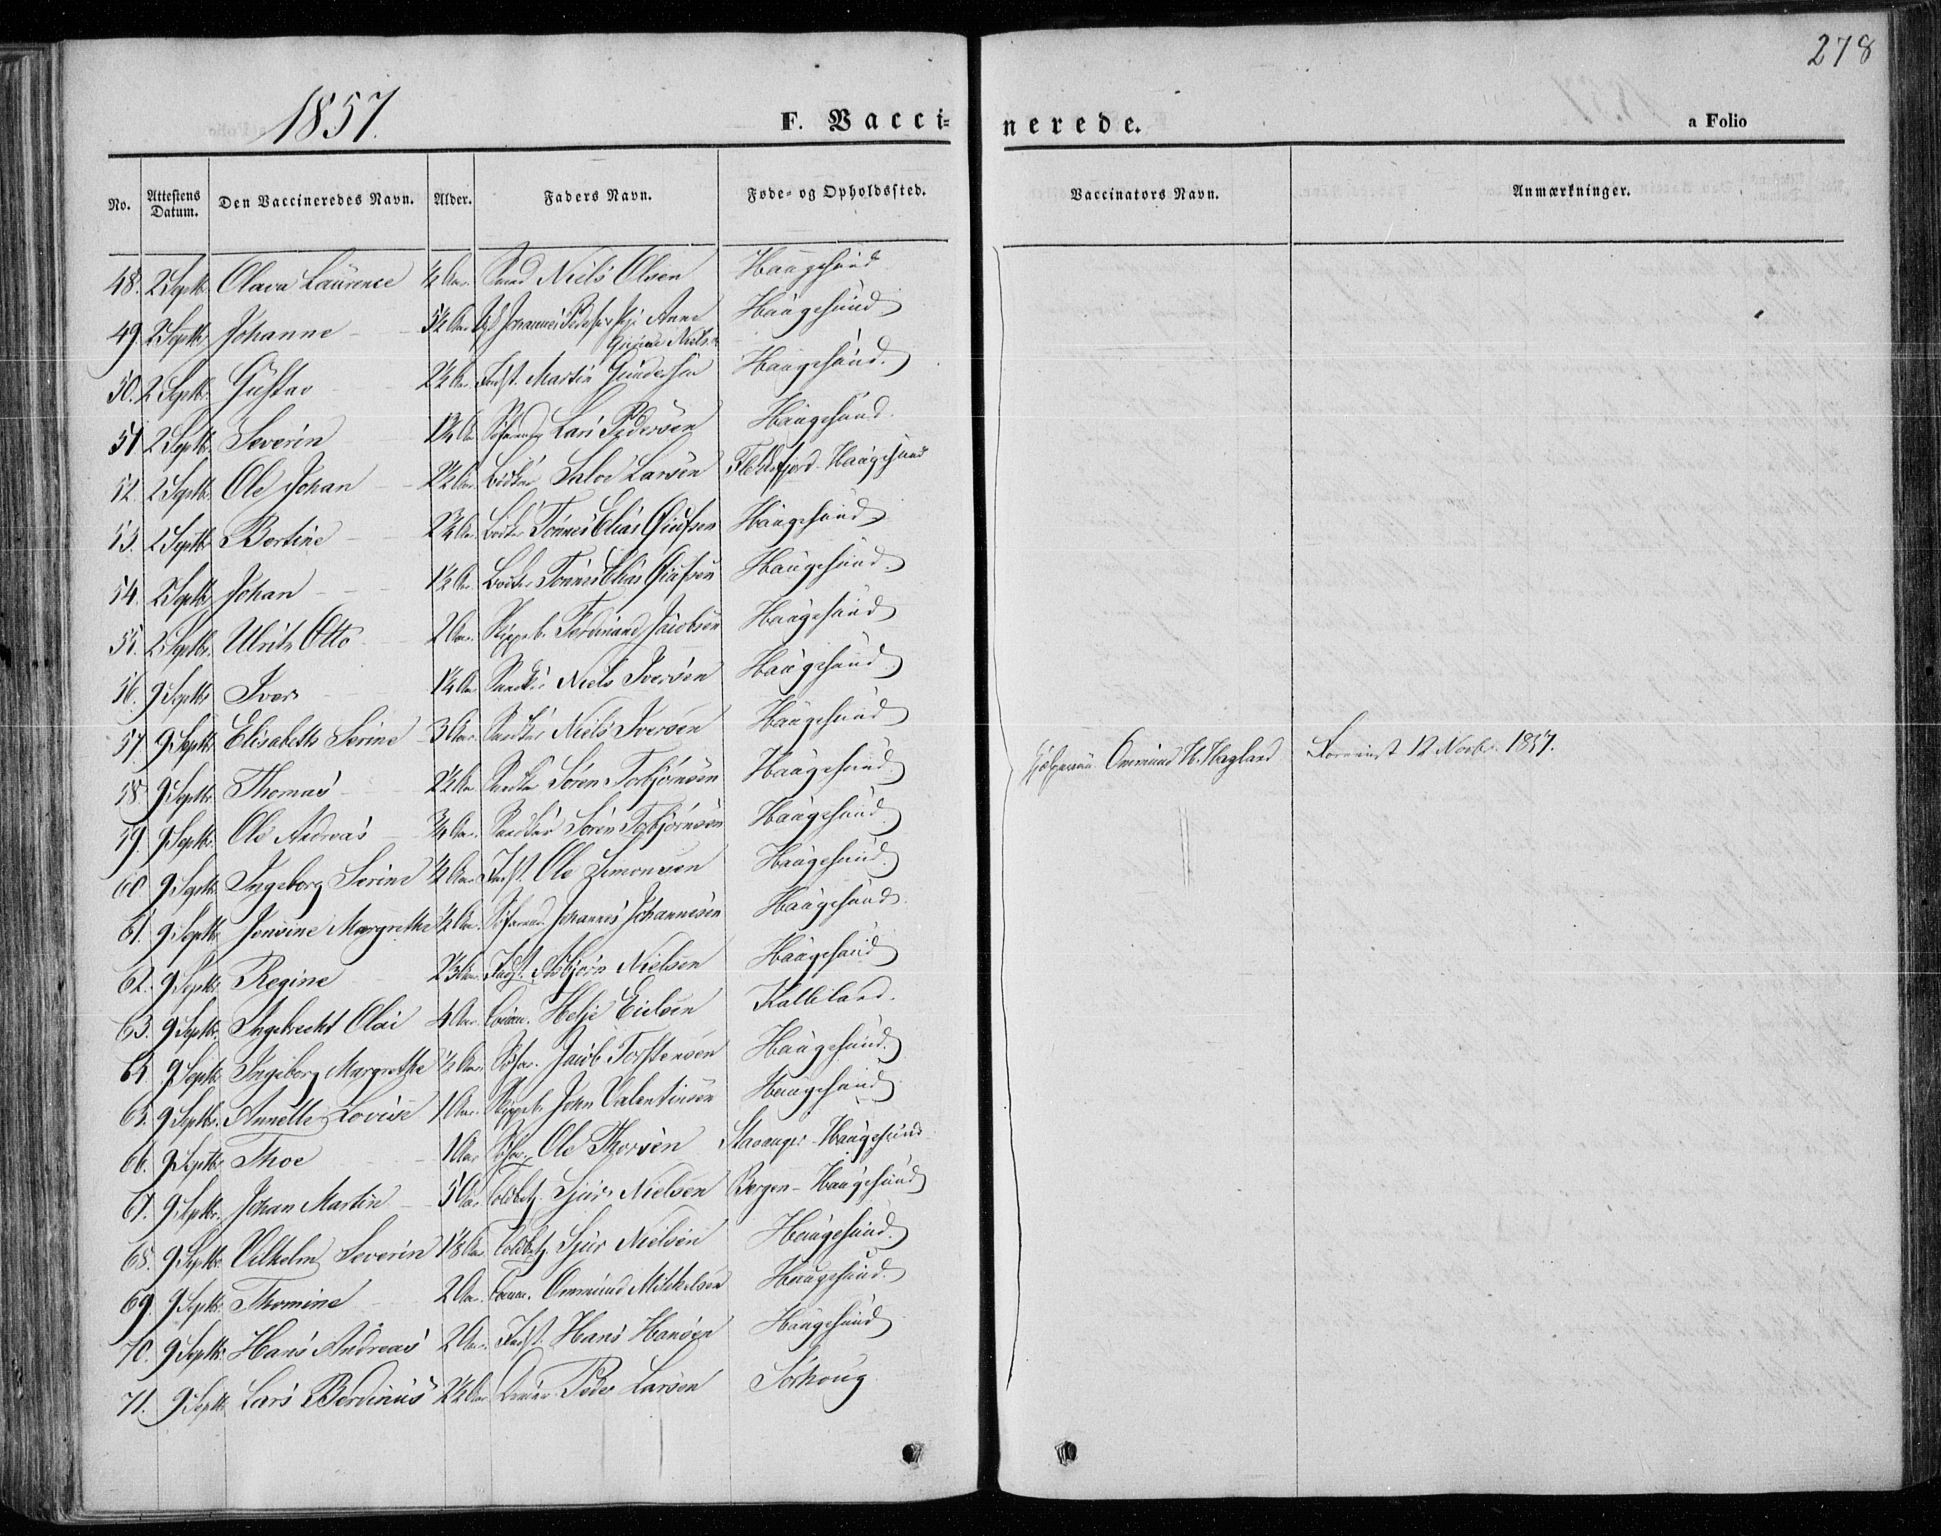 278
1857.
F. Vacci= nerede.
a Folio
No. Attestens Datum. Den Vaccineredes Navn. Alder. Faders Navn. Føde- og Opholdssted. Vaccinators Navn. Anmærkninger.
48. 2 Septbr. Olava Laurence ½ Aar. Niels Olsen Haugesund
49. 2 Septbr. Johanne 5½ Aar Johannes Pedersen Pige Anne
Haugesund
50. 2 Septbr. Gustav 2½ Aar Indst. Martin Gundersen Haugesund.
51 2 Septbr. Severin 1½ Aar Lars Pedersen Haugesund.
52 2 Septbr. Ole Johan 2½ Aar. Bødker Salve Larsen Flekkefjord - Haugesund
53. 2 Septbr Bertine 2½ Aar. Bødker Tønnes Elias Haugesund
54. 2 Septbr Johan 1½ Aar Bødker Tønnes Elias Haugesund.
55. 2 Septbr. Ulrik Otto 2 Aar. Skippeb. Ferdinand Jacobsen Haugesund
56. 9 Septbr Iver 1½ Aar Niels Iversen Haugesund.
57. 9 Septbr Elisabeth Serine 3 Aar Niels Iversen Haugesund
58. 9 Septbr. Thomas 2½ Aar Søren Torbjørnsen Haugesund.
59. 9 Septbr. Ole Andreas ¾ Aar. Søren Torbjørnsen Haugesund.
60 9 Septbr. Ingeborg Serine ½ Aar Indst. Ole Simonsen Haugesund.
61. 9 Septbr. Jonsine Margrethe ½ Aar. Johannes Johannesen Haugesund.
62. 9 Septbr. Regine Indst. Asbjørn Nielsen Haugesund
63. 9 Septbr. Ingebrecht Olai 4 Aar. Helje Eielsen Kalleland.
9 Septbr. Ingeborg Margrethe ½ Aar. Jacob Torstensen Haugesund.
65. 9 Septbr. Annette Lovise 1 Aar. Skippeb. John Valentinsen Haugesund
66. 9 Septbr. Thoe 1 Aar Ole Thorsen Stavanger - Haugesund
67. 9 Septbr. Johan Martin 5 Aar Toldbetj. Sjur Nielsen Bergen - Haugesund
68. 9 Septbr. Vilhelm Severin Toldbetj. Sjur Nielsen Haugesund.
69. 9 Septbr. Thomine 2 Aar. Ommund Mikkelsen Haugesund.
70. 9 Septbr. Hans Andreas 2 Aar. Indst. Hans Hansen Haugesund
71. 9 Septbr Lars Berdinius 2½ Aar Peder Larsen Sørhoug
Ommund H. Hagland 12 Novbr. 1857.